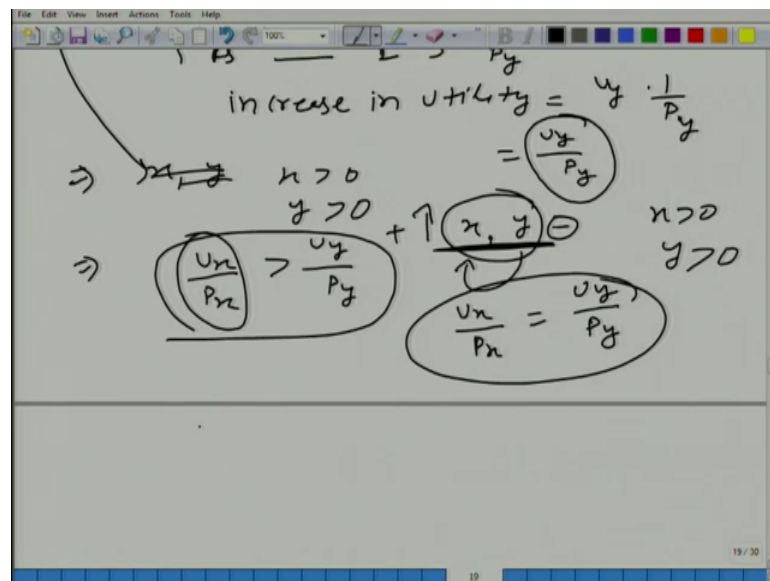 File Edit View Insert Actions Tools Help
100%
1 Rs
Py
increase in utility = Uy · 1/Py
= Uy/Py
⇒ x, y x > 0
y > 0
⇒ Ux/Px > Uy/Py + ↑ x, y − x > 0
y > 0
Ux/Px = Uy/Py
19 / 30
19